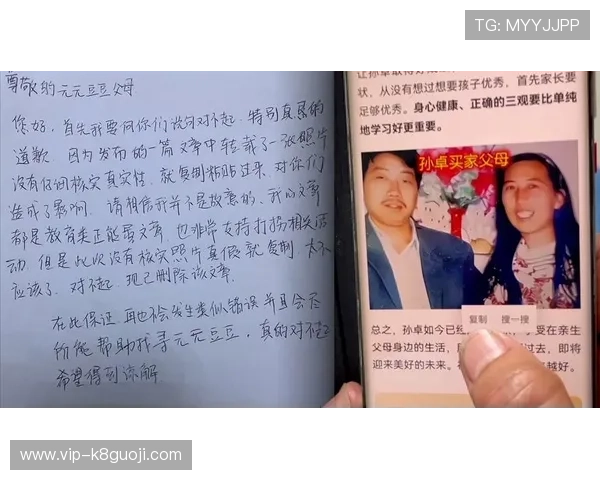 TG: MYYJJPP
尊敬的元元豆豆父母
您好，首先我要向你们说句对不起，特别真恳的
道歉，因为发布的一篇文章中转载了一张照片
没有仔细核实真实性，就复制粘贴过来，对你们
造成了影响，请相信我并不是故意的，我的文章
都是教育类正能量文章，也非常支持打拐相关活
动，但是此次没有核实照片真假就复制，太不
应该了，对不起，现已删除该文章，
在此保证，再也不会发生类似错误并且会尽
所能帮助找寻元元豆豆，真的对不起
希望得到谅解
让孙卓取得好成
状，从没有想过想要孩子优秀，首先家长要
足够优秀。身心健康、正确的三观要比单纯
地学习好更重要。
孙卓买家父母
复制 搜一搜
总之，孙卓如今已经 享受在亲生
父母身边的生活， 过去，即将
迎来美好的未来。 越好。
www.vip-k8guoji.com